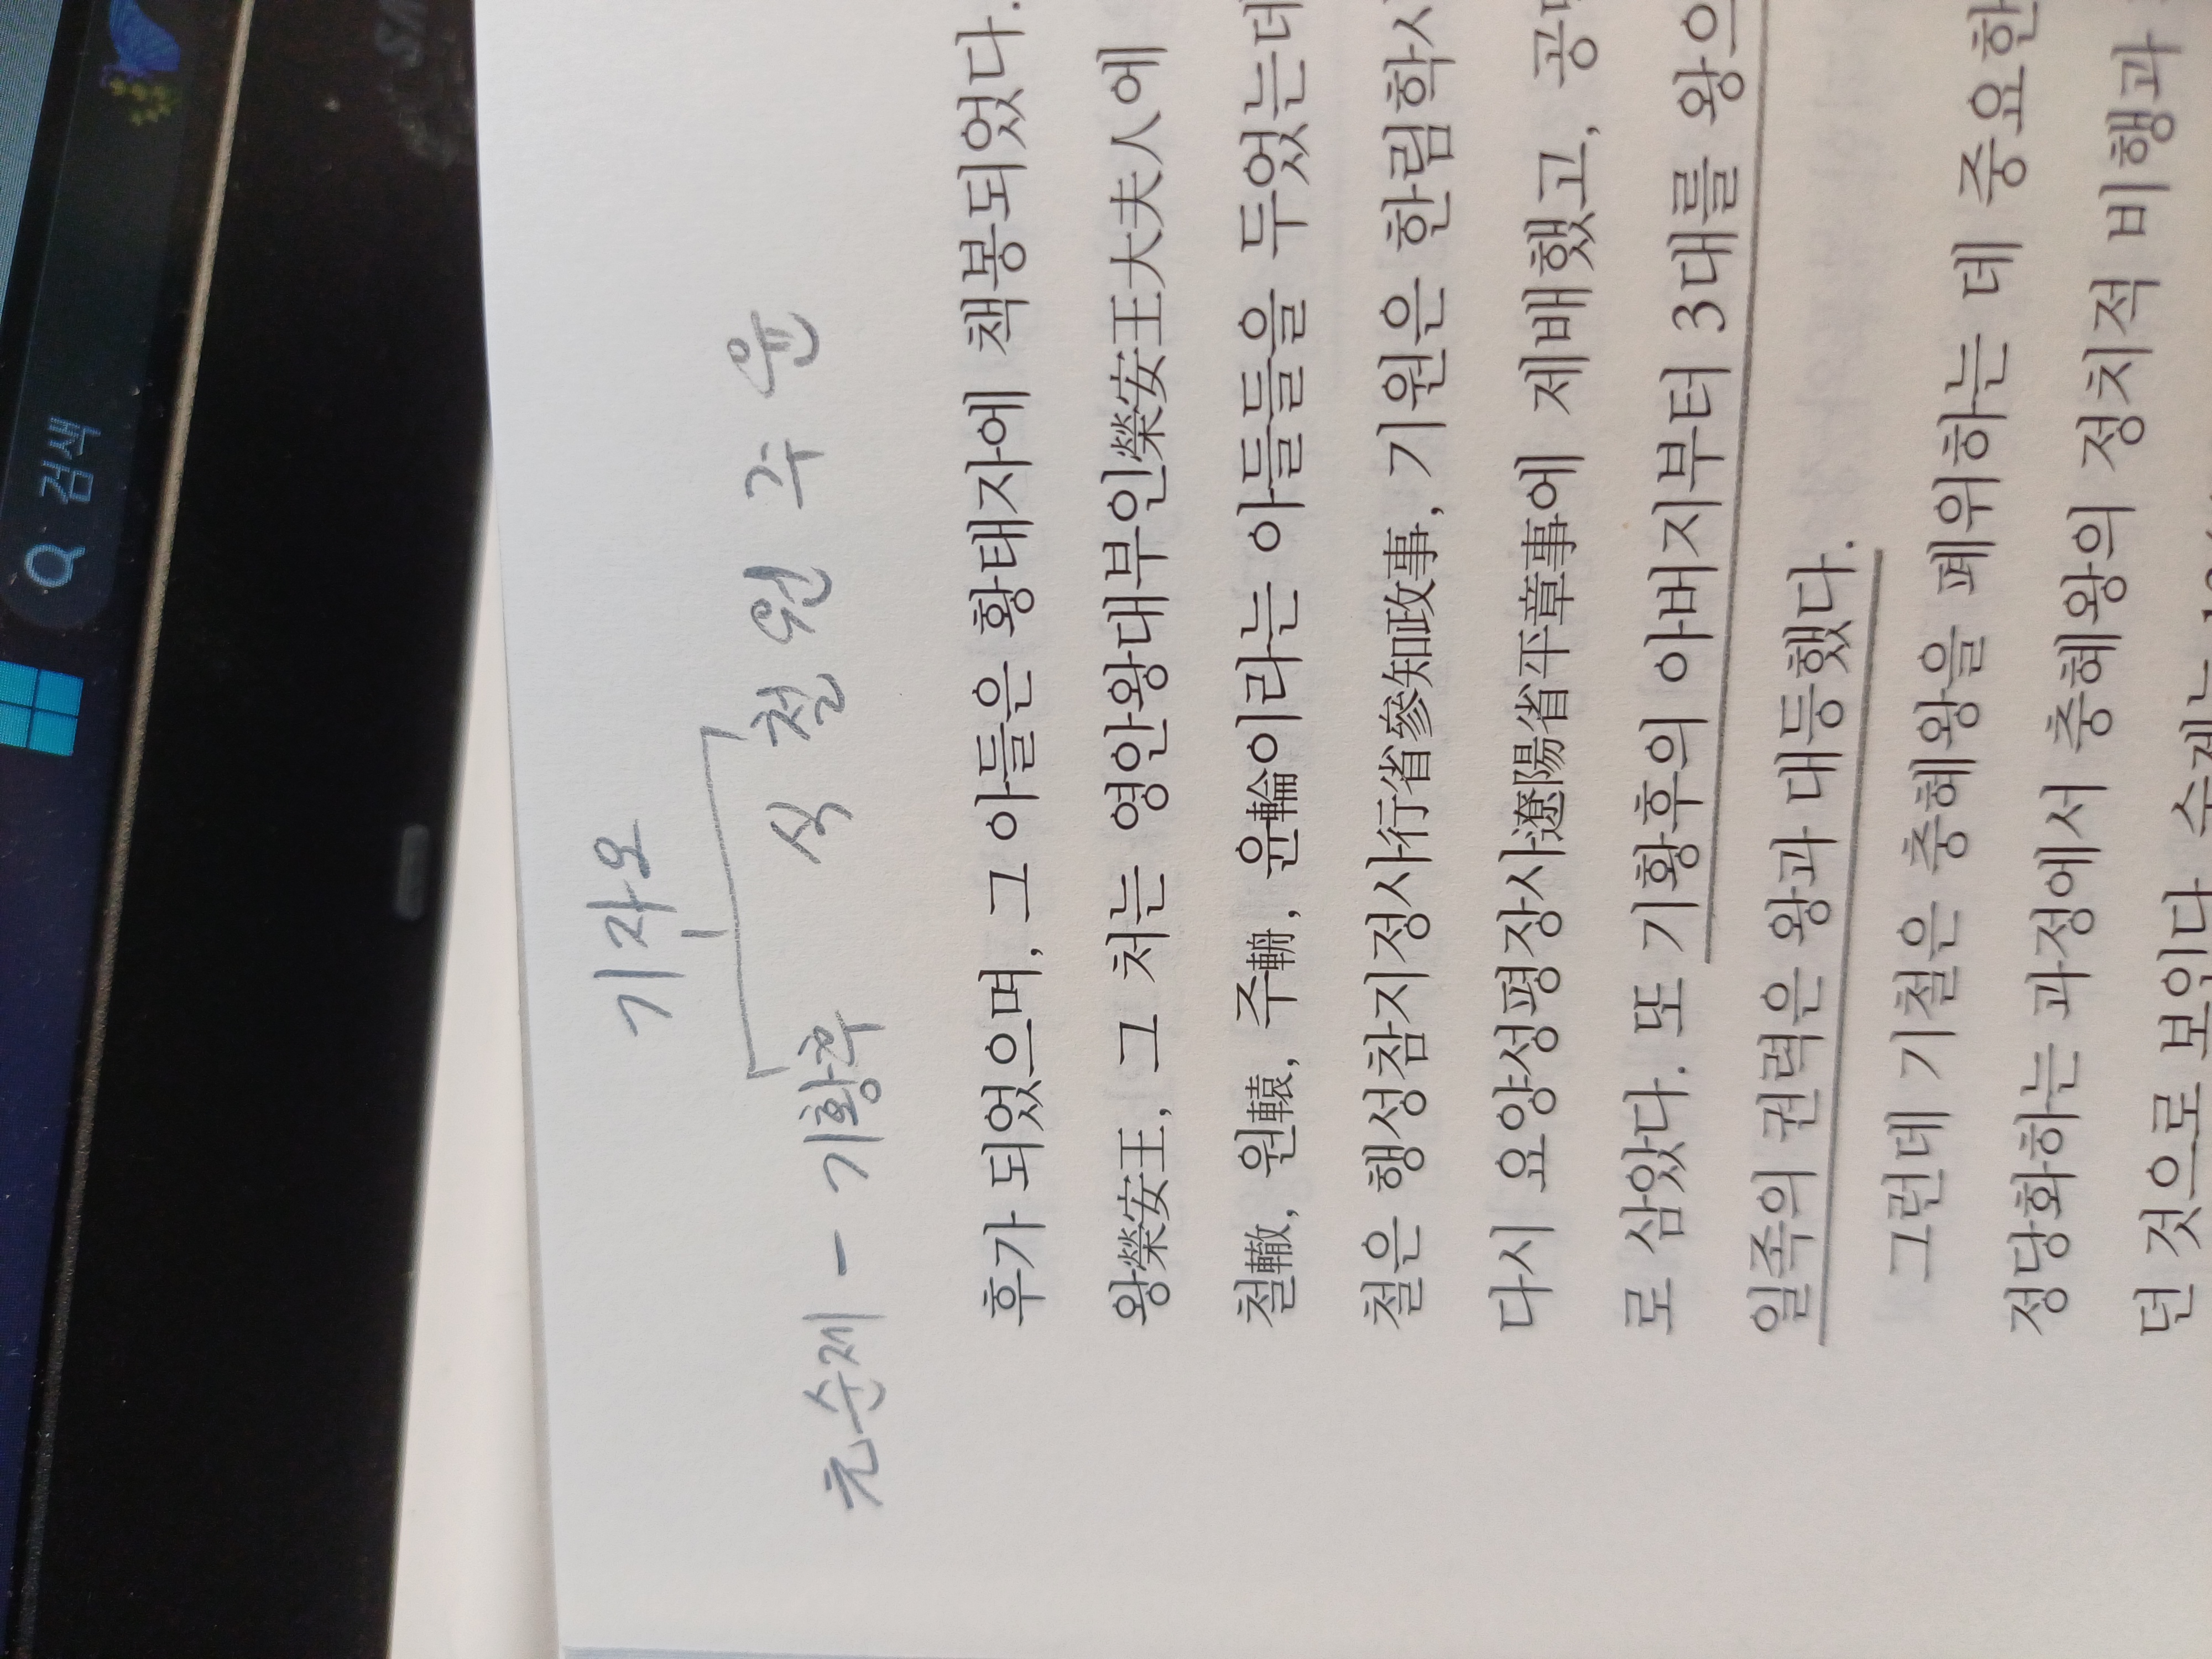 검색
기자오
元순제 - 기황후 식 철 원 주 윤
후가 되었으며, 그 아들은 황태자에 책봉되었다.
왕榮安王, 그 처는 영안왕대부인榮安王大夫人에
철轍, 원轅, 주輈, 윤輪이라는 아들들을 두었는데
철은 행성참지정사行省參知政事, 기원은 한림학사
다시 요양성평장사遼陽省平章事에 제배했고, 공
로 삼았다. 또 기황후의 아버지부터 3대를 왕의
일족의 권력은 왕과 대등했다.
그런데 기철은 충혜왕을 폐위하는 데 중요한
정당화하는 과정에서 충혜왕의 정치적 비행과
던 것으로 보인다